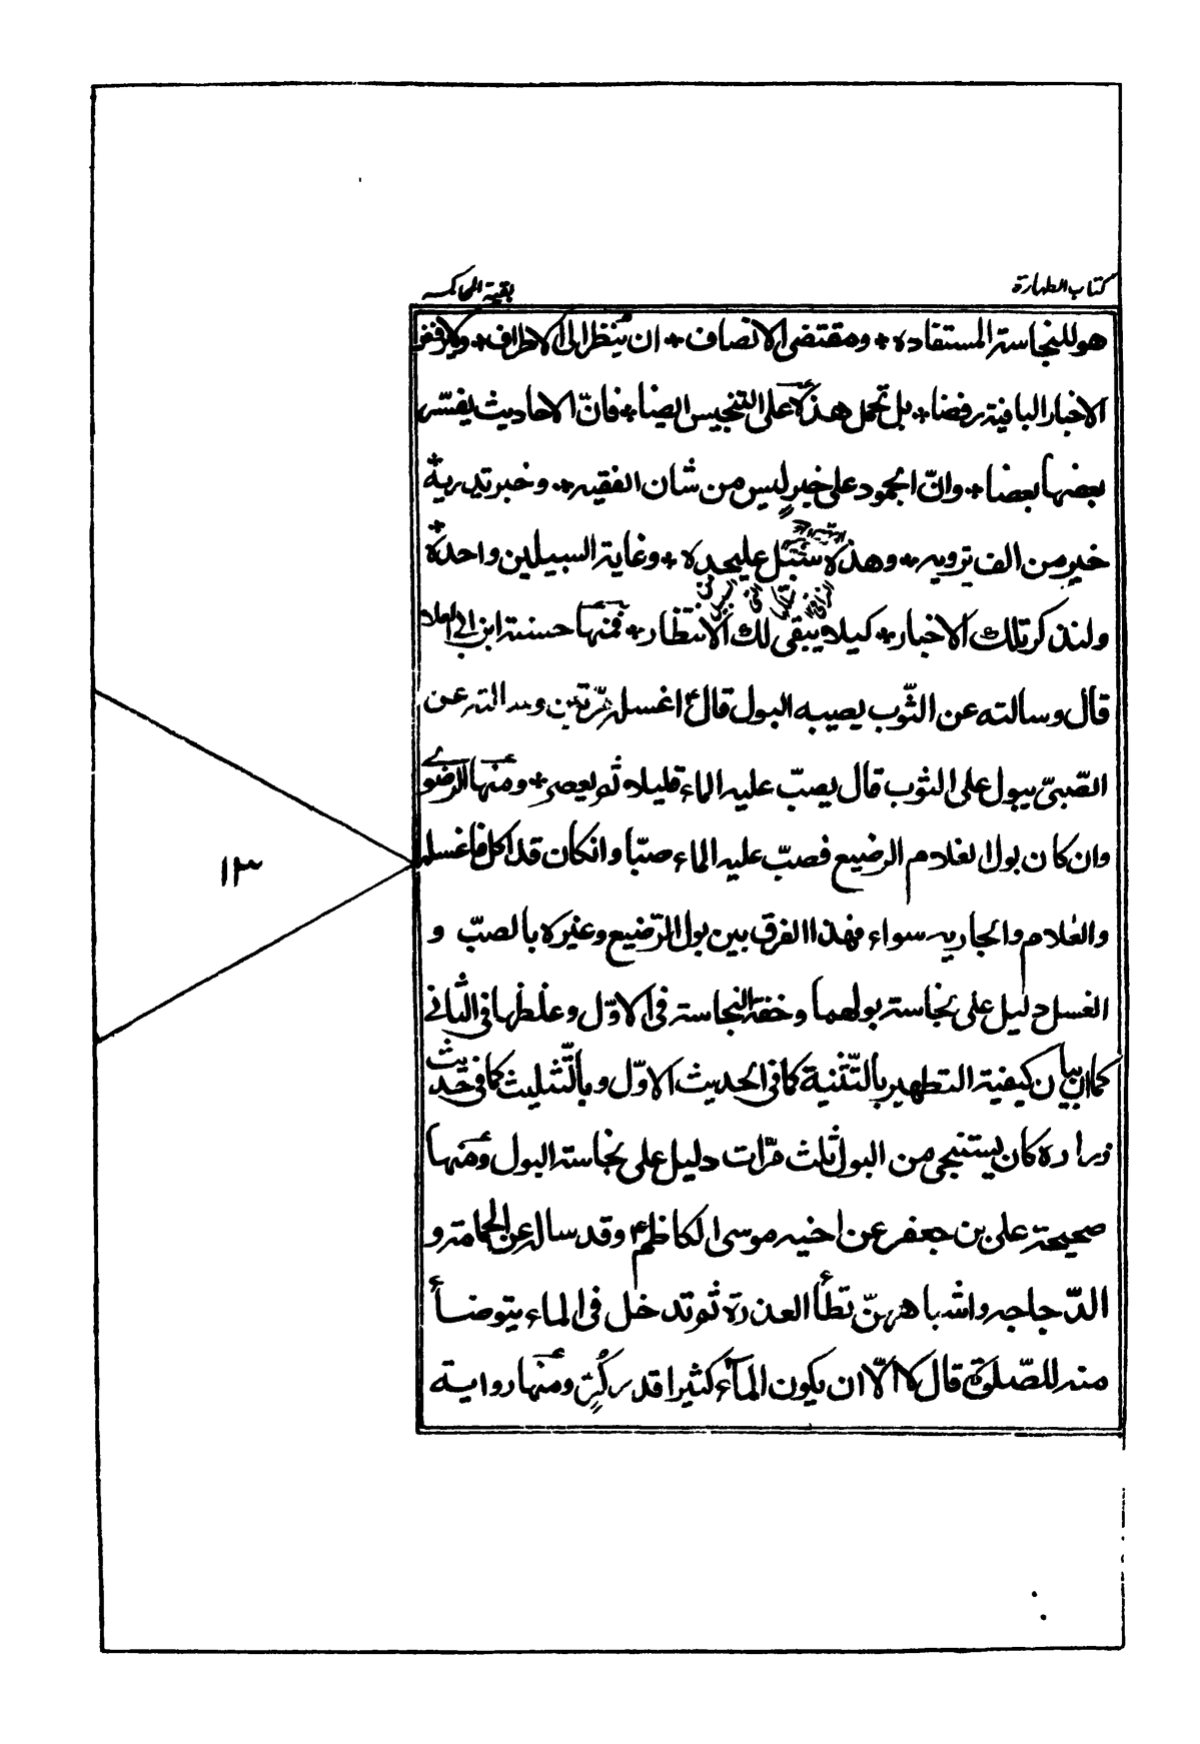 كتاب الطهارة
بقية المحاكمه
هو للنجاسة المستفاده + ومقتضى الانصاف + ان يُنظر الى الاطراف + ولا ترفض
الاخبار الباقية رفضا + بل تحمل هذه على التنجيس ايضا + فانّ الاحاديث يفسّر
بعضها بعضا + وانّ الجمود على خبرٍ ليس من شان الفقيه + وخبر تدريه +
خير من الف ترويه + وهذه سُبُل عليحده + وغاية السبيلين واحدة +
ولنذكر تلك الاخبار + كيلا يبقى لك الانتظار + فمنها حسنة ابن ابي العلا
قال وسالته عن الثّوب يصيبه البول قال اغسله مرّتين وسالته عن
الصّبيّ يبول على الثوب قال يصبّ عليه الماء قليلا ثم يعصر + ومنها الرضوى
وان كان بول الغلام الرضيع فصبّ عليه الماء صبّا وانكان قد اكل فاغسله
والغلام والجاريه سواء فهذا الفرق بين بول الرّضيع وغيره بالصبّ و
الغسل دليل على نجاسة بولهما وخفة النجاسة فى الاوّل وغلظها فى الثانى
كما ان بيان كيفية التطهير بالتّثنية كما فى الحديث الاوّل وبالتّثليث كما فى حديث
زرارة كان يستنجى من البول ثلث مرّات دليل على نجاسة البول ومنها
صحيحة على بن جعفر عن اخيه موسى الكاظم ع وقد ساله عن الحمامة و
الدّجاجه واشباههنّ تطأ العذرة ثم تدخل فى الماء يتوضأ
منه للصّلوة قال لا الّا ان يكون الماء كثيرا قدر كُرٍّ ومنها رواية
١٣